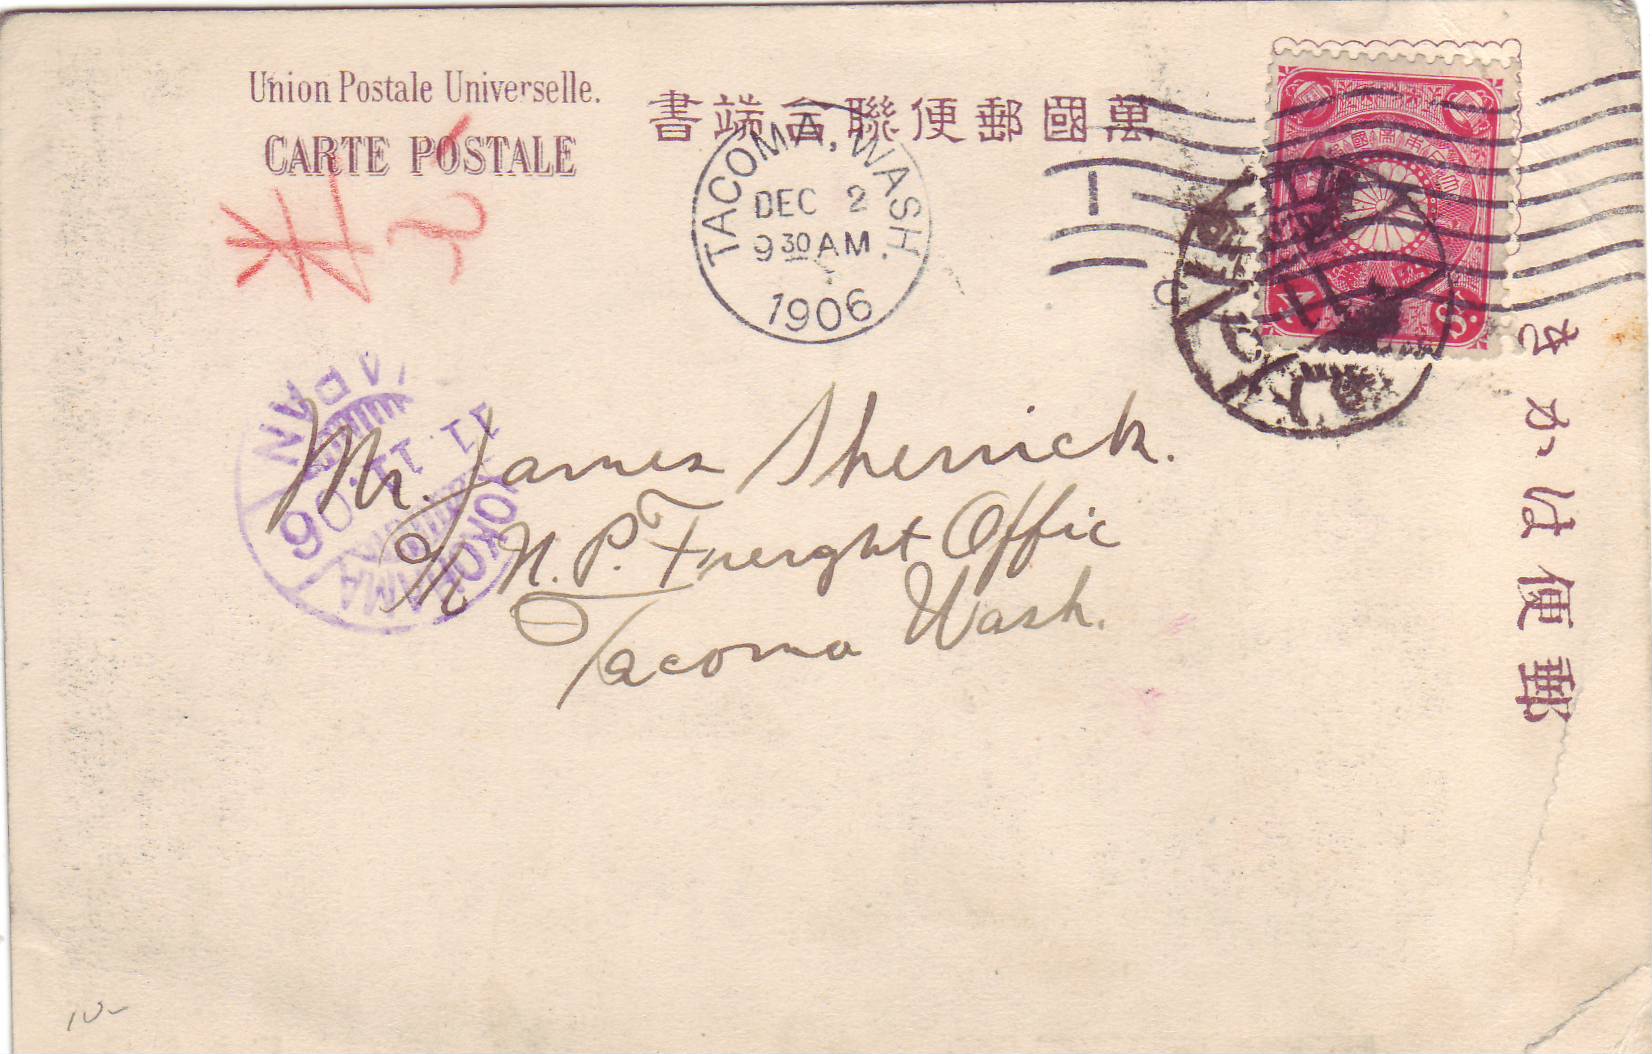 Union Postale Universelle.
CARTE POSTALE
書端合聯便郵國萬
TACOMA, WASH.
DEC 2
9 30 AM
1906
1
米
JAPAN
11.11.06
YOKOHAMA
Mr. James Sherrick.
c/o N. P. Freight Offic
Tacoma Wash.
郵便はかき
10-